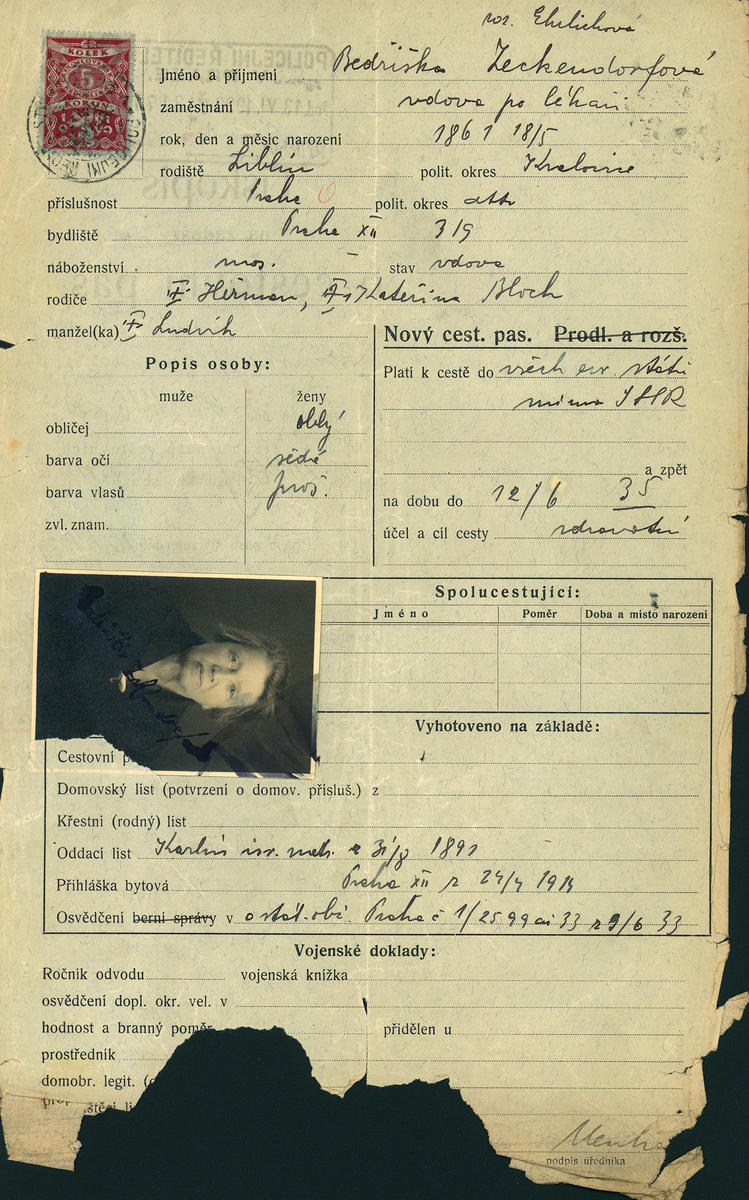 roz. Ehrlichová
KOLEK
5
KORUN
Jméno a přijmení Bedřiška Zeckendorfová
zaměstnání vdova po lékaři
rok, den a měsíc narození 1861 18/5
rodiště Liblín polit. okres Kralovice
příslušnost Praha polit. okres dtto
bydliště Praha XII 319
náboženství mos. stav vdova
rodiče Heřman, Kateřina Bloch
manžel(ka) Ludvík
Nový cest. pas. Prodl. a rozš.
Popis osoby:
Platí k cestě do všech evr. států
mimo SSSR
muže ženy
obličej oblý
barva očí šedé
barva vlasů proš.
zvl. znam.
a zpět
na dobu do 12/6 35
účel a cíl cesty zdravotní
Spolucestující:
Jméno Poměr Doba a místo narození
Vyhotoveno na základě:
Cestovní p
Domovský list (potvrzení o domov. přísluš.) z
Křestní (rodný) list
Oddací list Karlín isr. mat. z 31/8 1891
Přihláška bytová Praha XII z 24/4 1914
Osvědčení berní správy v o stát. obč. Praha č 1/2599 ai 33 z 9/6 33
Vojenské doklady:
Ročník odvodu vojenská knížka
osvědčení dopl. okr. vel. v
hodnost a branný poměr přidělen u
prostředník
domobr. legit. (
podpis úředníka